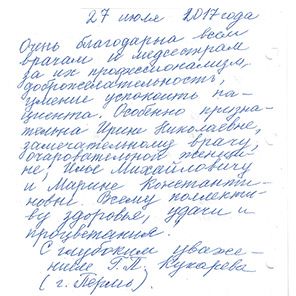 27 июля 2017 года
Очень благодарна всем
врачам и медсестрам
за их профессионализм,
доброжелательность,
умение успокоить па-
циента. Особенно призна-
тельна Ирине Николаевне,
замечательному врачу,
очаровательной женщи-
не, Илье Михайловичу
и Марине Константи-
новне. Всему коллекти-
ву здоровья, удачи и
процветания.
С глубоким уваже-
нием Г.П. Кухарева
(г. Пермь).